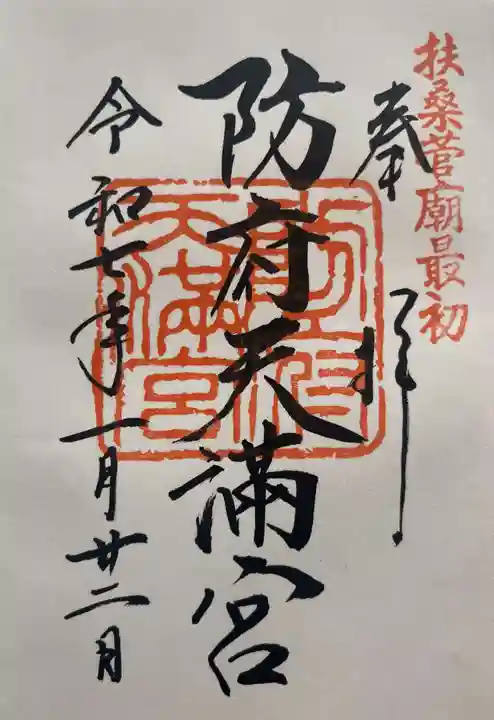 扶桑菅廟最初
奉拝
防府天満宮
防府天満宮
令和七年一月廿二日